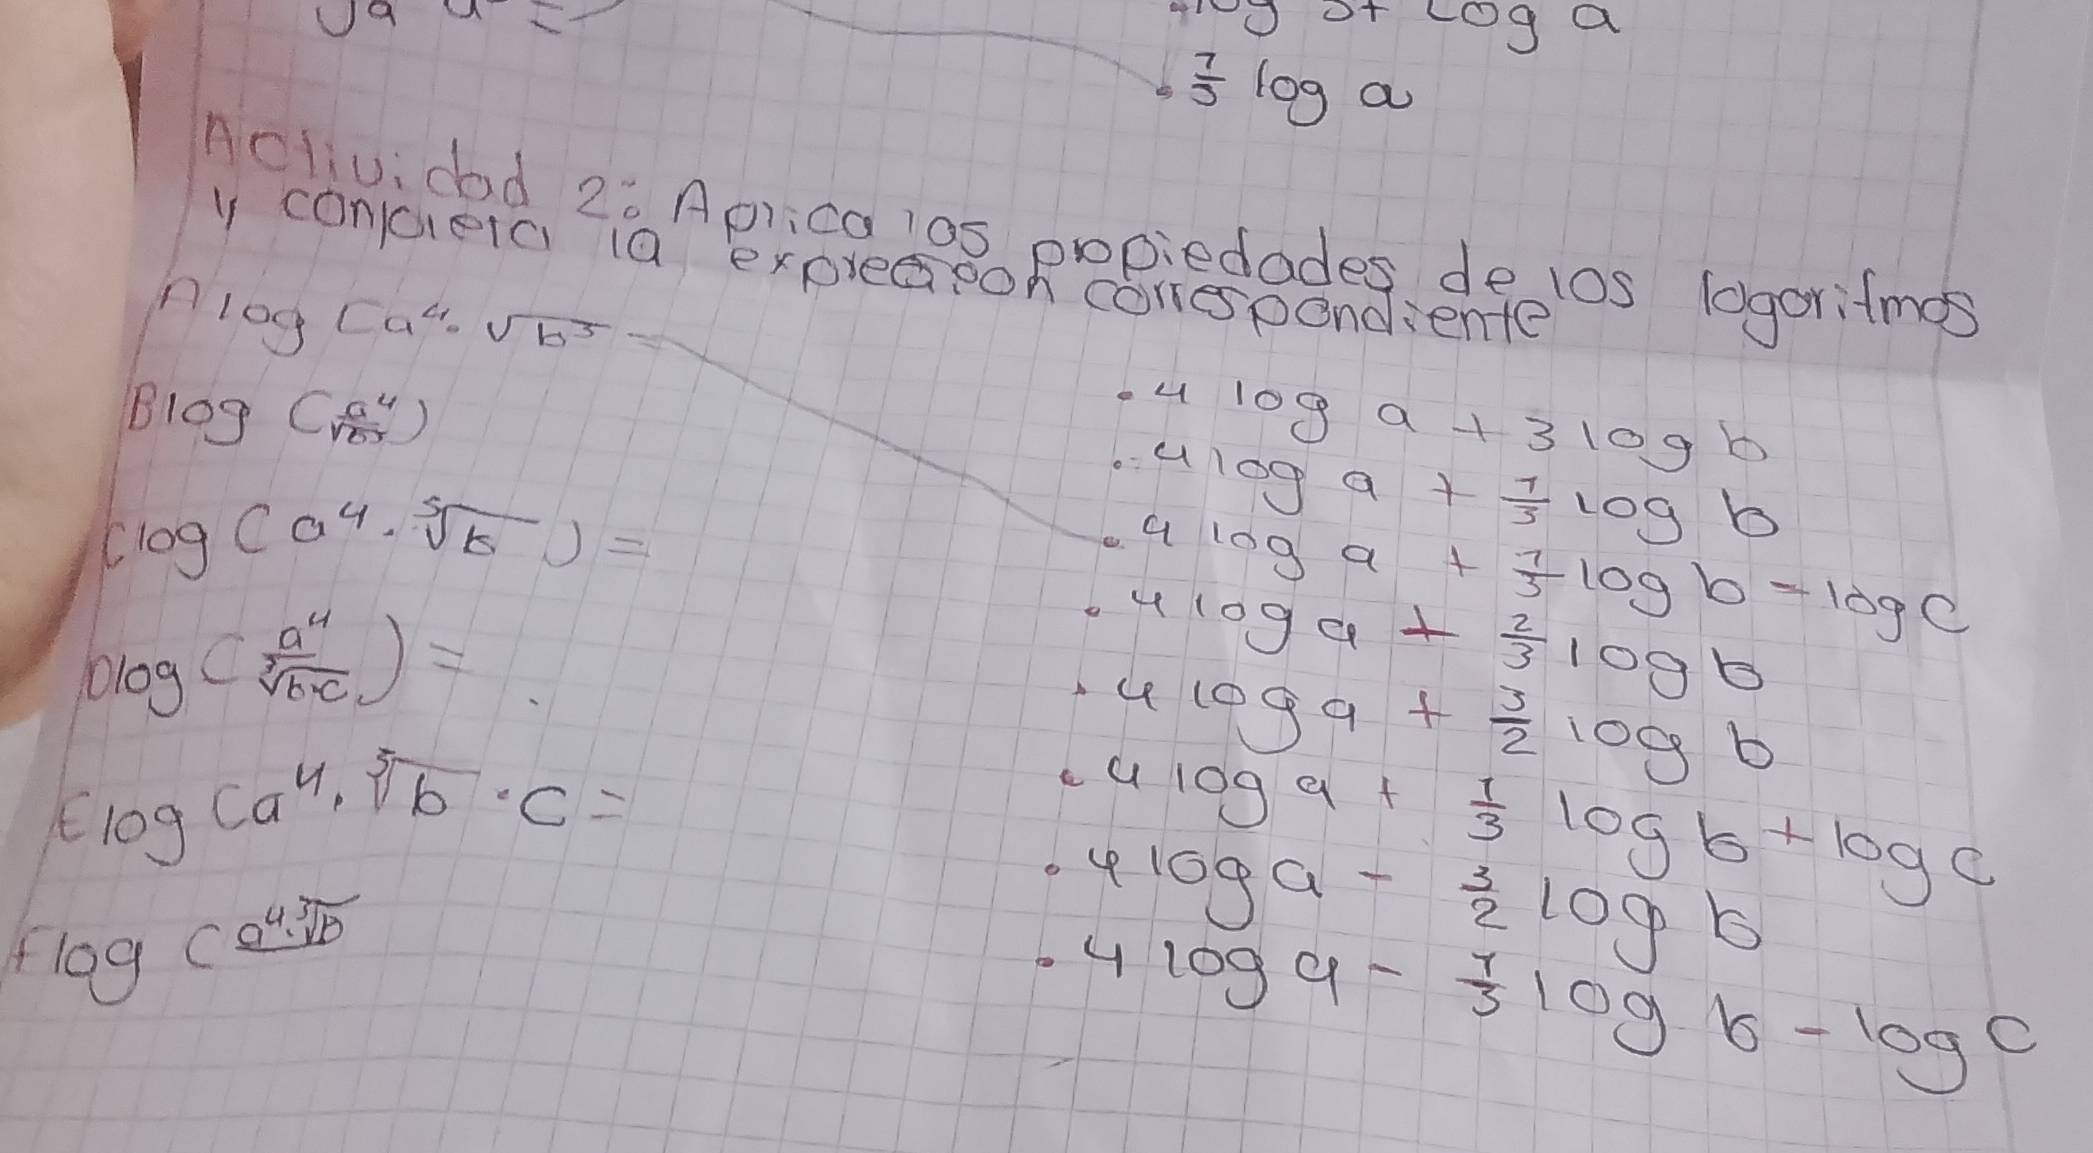 log a
7/3 log a
Actividad 2: Aplica las propiedades de los logoritmos
y conpleta la correspondiente
A log (a⁴·√b³ =
B log (a⁴/√b³)
C log (a⁴·³√b) =
D log (a⁴/³√b·c) =
E log (a⁴·³√b·c =
F log (a⁴·³√b
· 4 log a + 3 log b
· 4 log a + 1/3 log b
· 4 log a + 1/3 log b - log c
· 4 log a + 2/3 log b
· 4 log a + 3/2 log b
· 4 log a + 1/3 log b + log c
· 4 log a - 3/2 log b
· 4 log a - 1/3 log b - log c